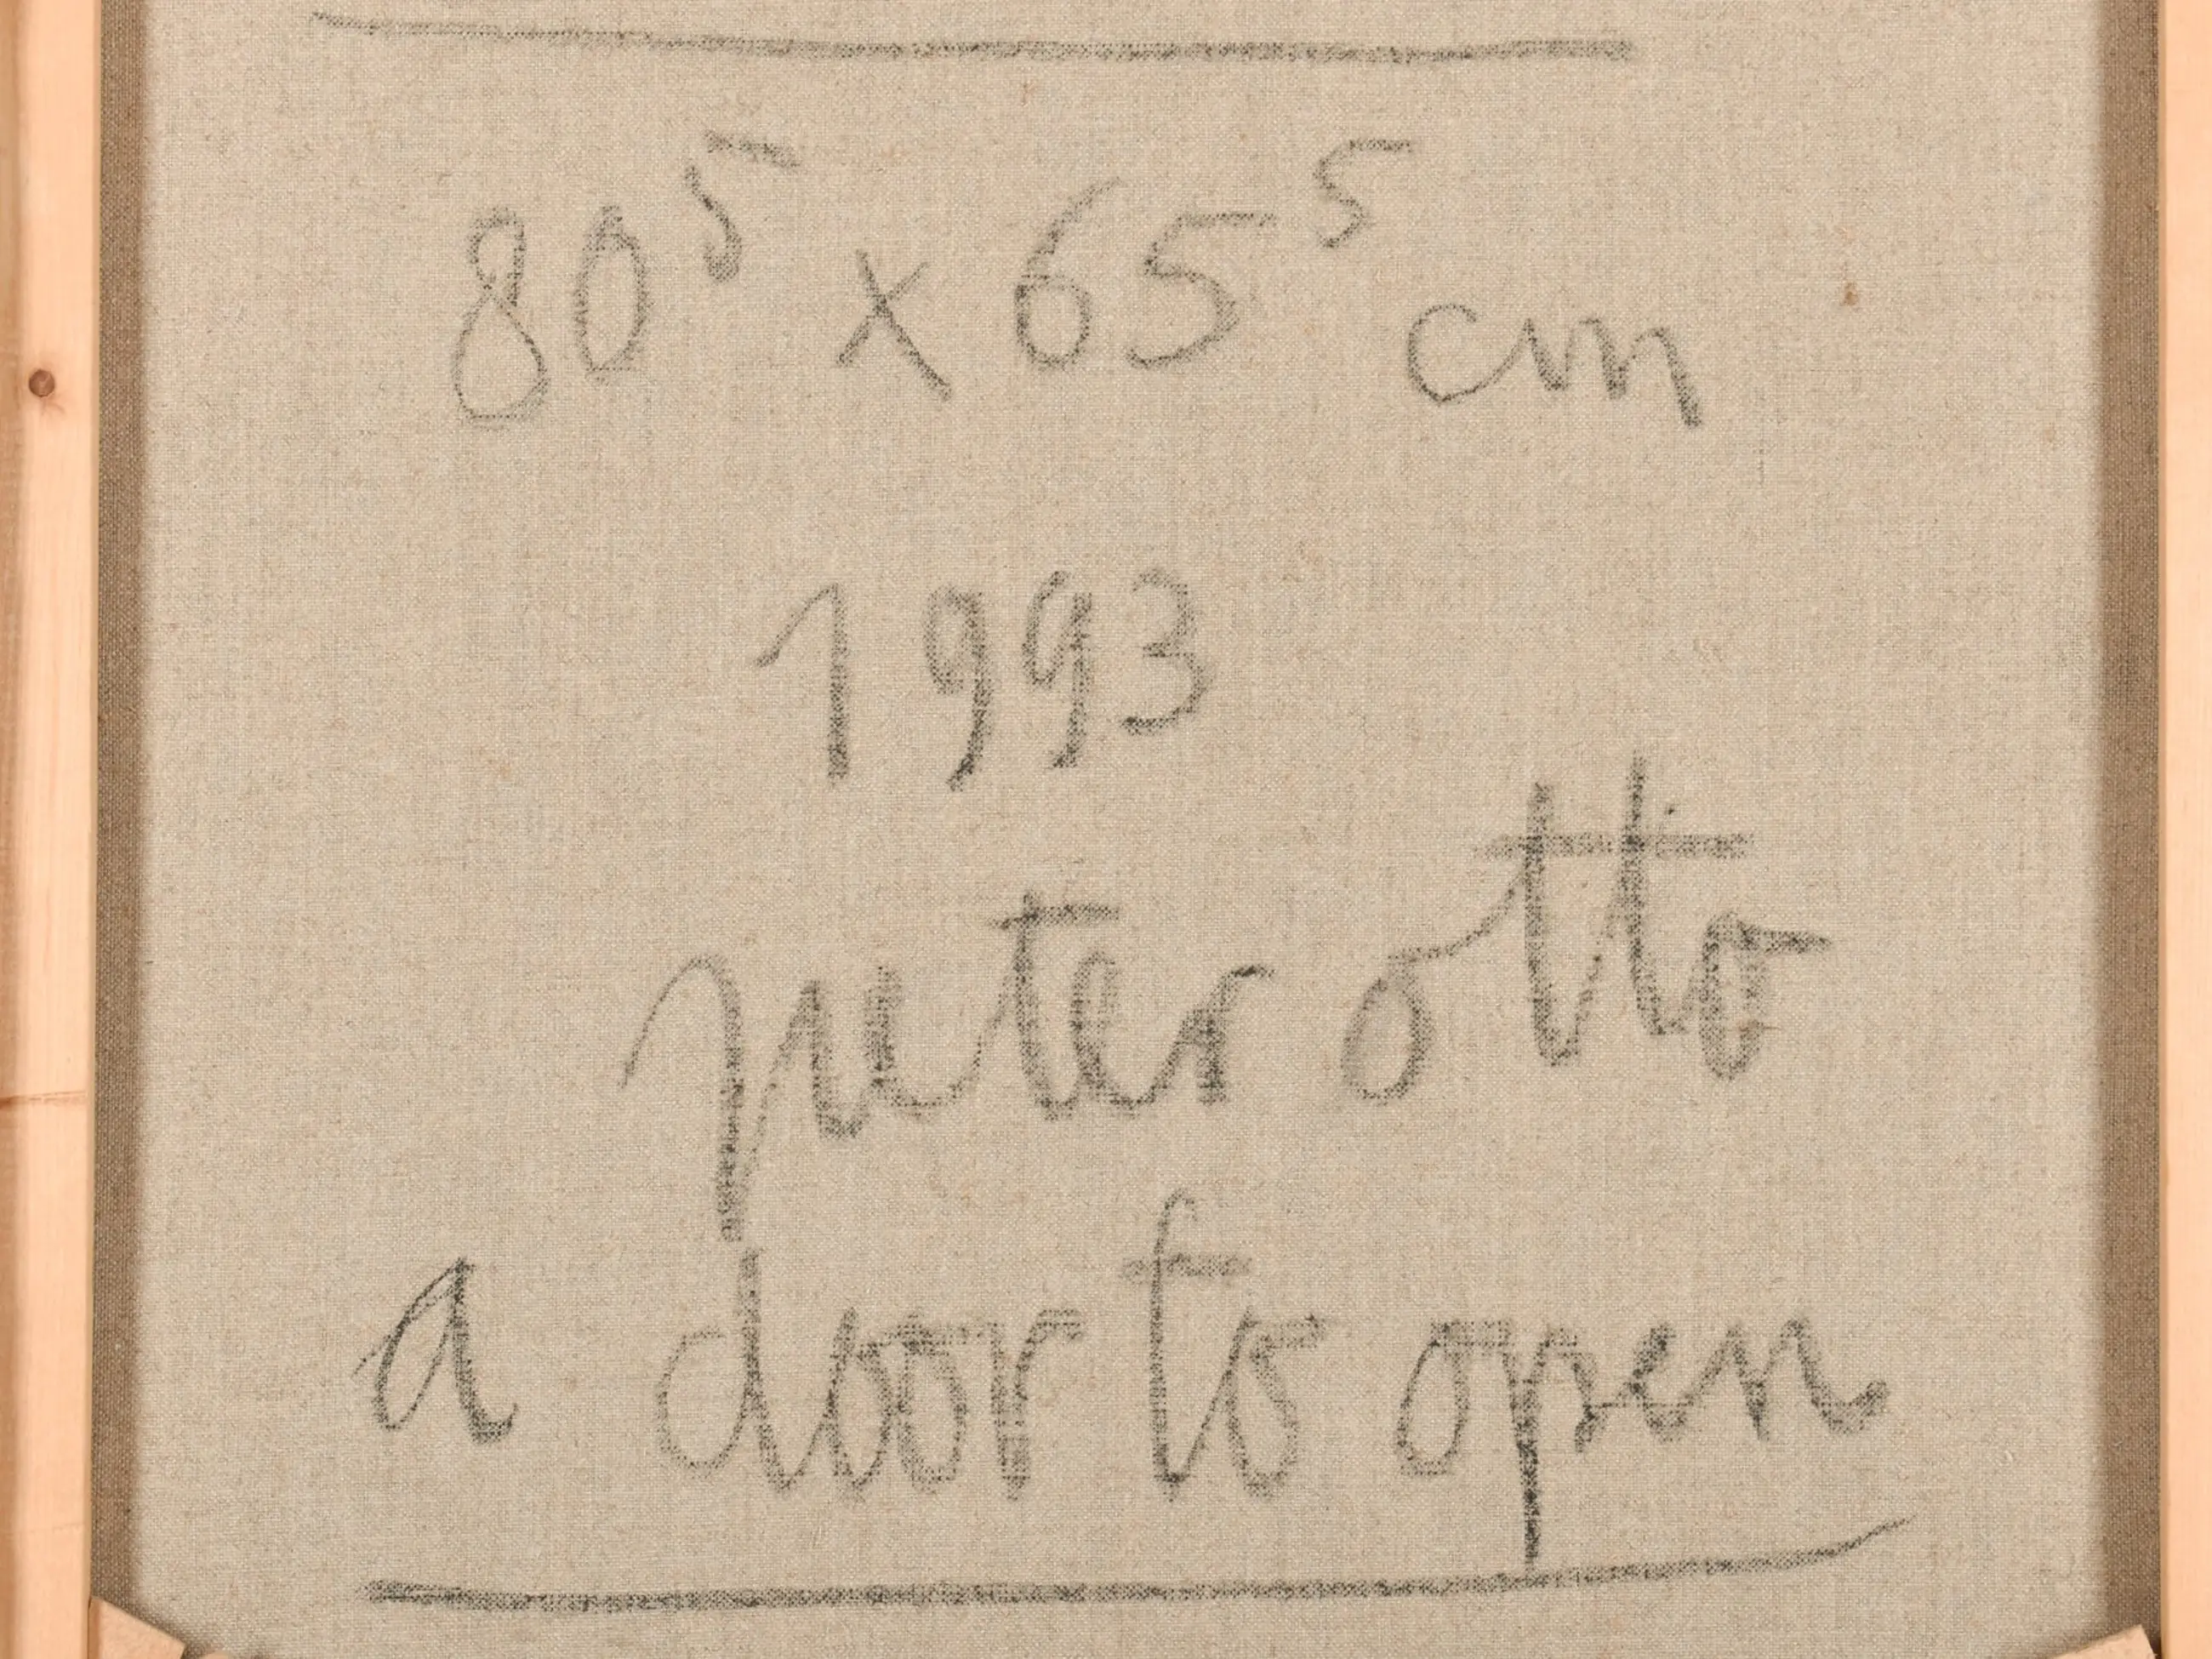 80⁵ x 65⁵ cm
1993
peter otto
a door to open